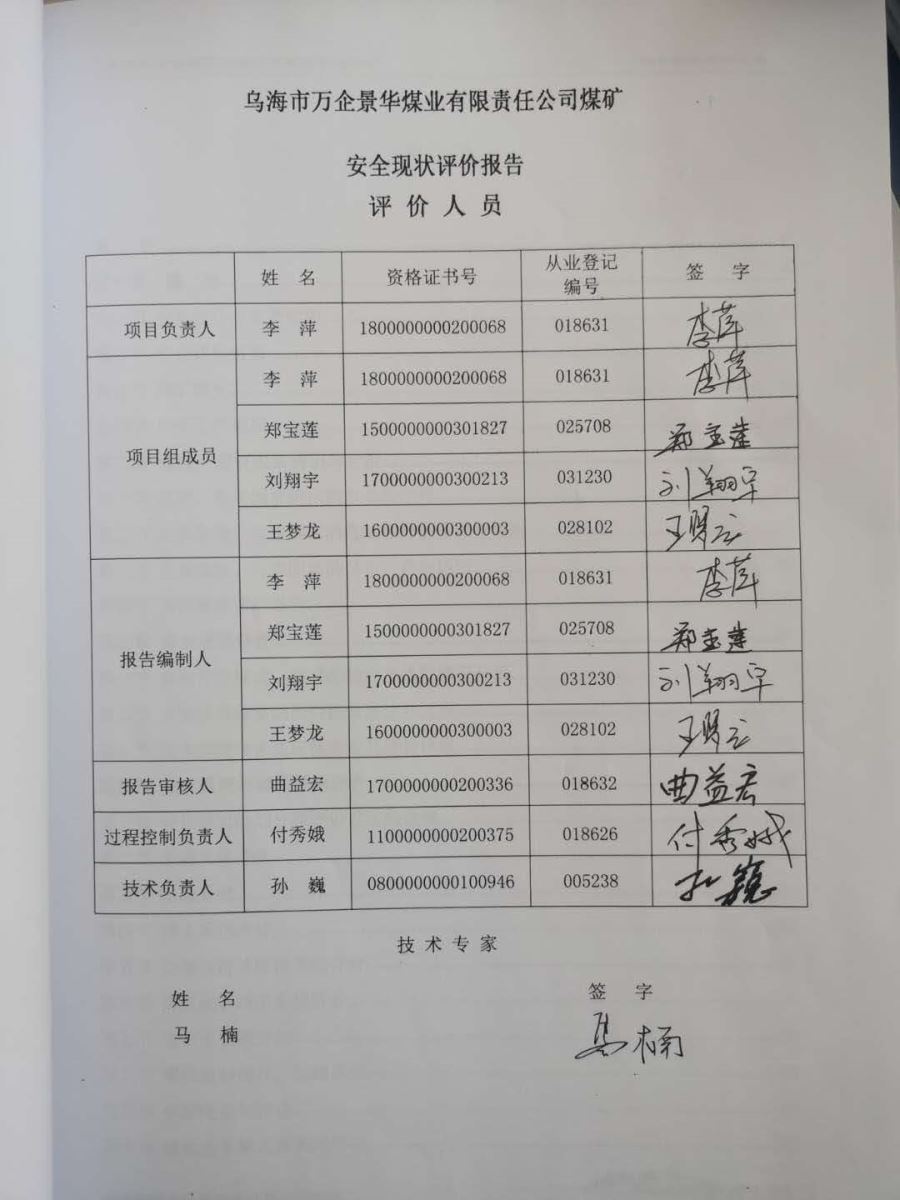 乌海市万企景华煤业有限责任公司煤矿
安全现状评价报告
评 价 人 员
姓 名 资格证书号 从业登记编号 签 字
项目负责人 李 萍 1800000000200068 018631 李萍
项目组成员 李 萍 1800000000200068 018631 李萍
郑宝莲 1500000000301827 025708 郑宝莲
刘翔宇 1700000000300213 031230 刘翔宇
王梦龙 1600000000300003 028102 王梦龙
报告编制人 李 萍 1800000000200068 018631 李萍
郑宝莲 1500000000301827 025708 郑宝莲
刘翔宇 1700000000300213 031230 刘翔宇
王梦龙 1600000000300003 028102 王梦龙
报告审核人 曲益宏 1700000000200336 018632 曲益宏
过程控制负责人 付秀娥 1100000000200375 018626 付秀娥
技术负责人 孙 巍 0800000000100946 005238 孙巍
技 术 专 家
姓 名 签 字
马 楠 马楠